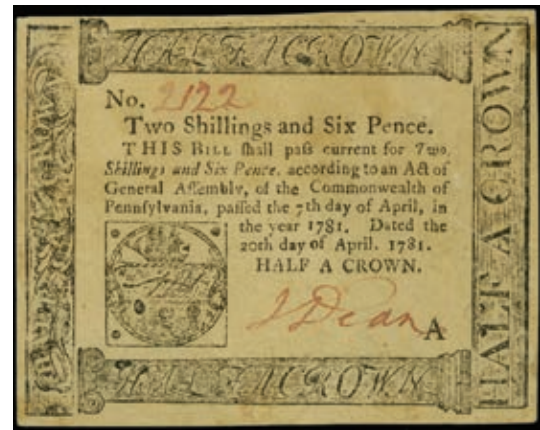 HALF A CROWN
No. 2122
Two Shillings and Six Pence.
THIS BILL ſhall paſs current for Two
Shillings and Six Pence, according to an Act of
General Aſſembly, of the Commonwealth of
Pennſylvania, paſſed the 7th day of April, in
the year 1781. Dated the
20th day of April. 1781.
HALF A CROWN.
J Dean A
HALF A CROWN
HALF A CROWN